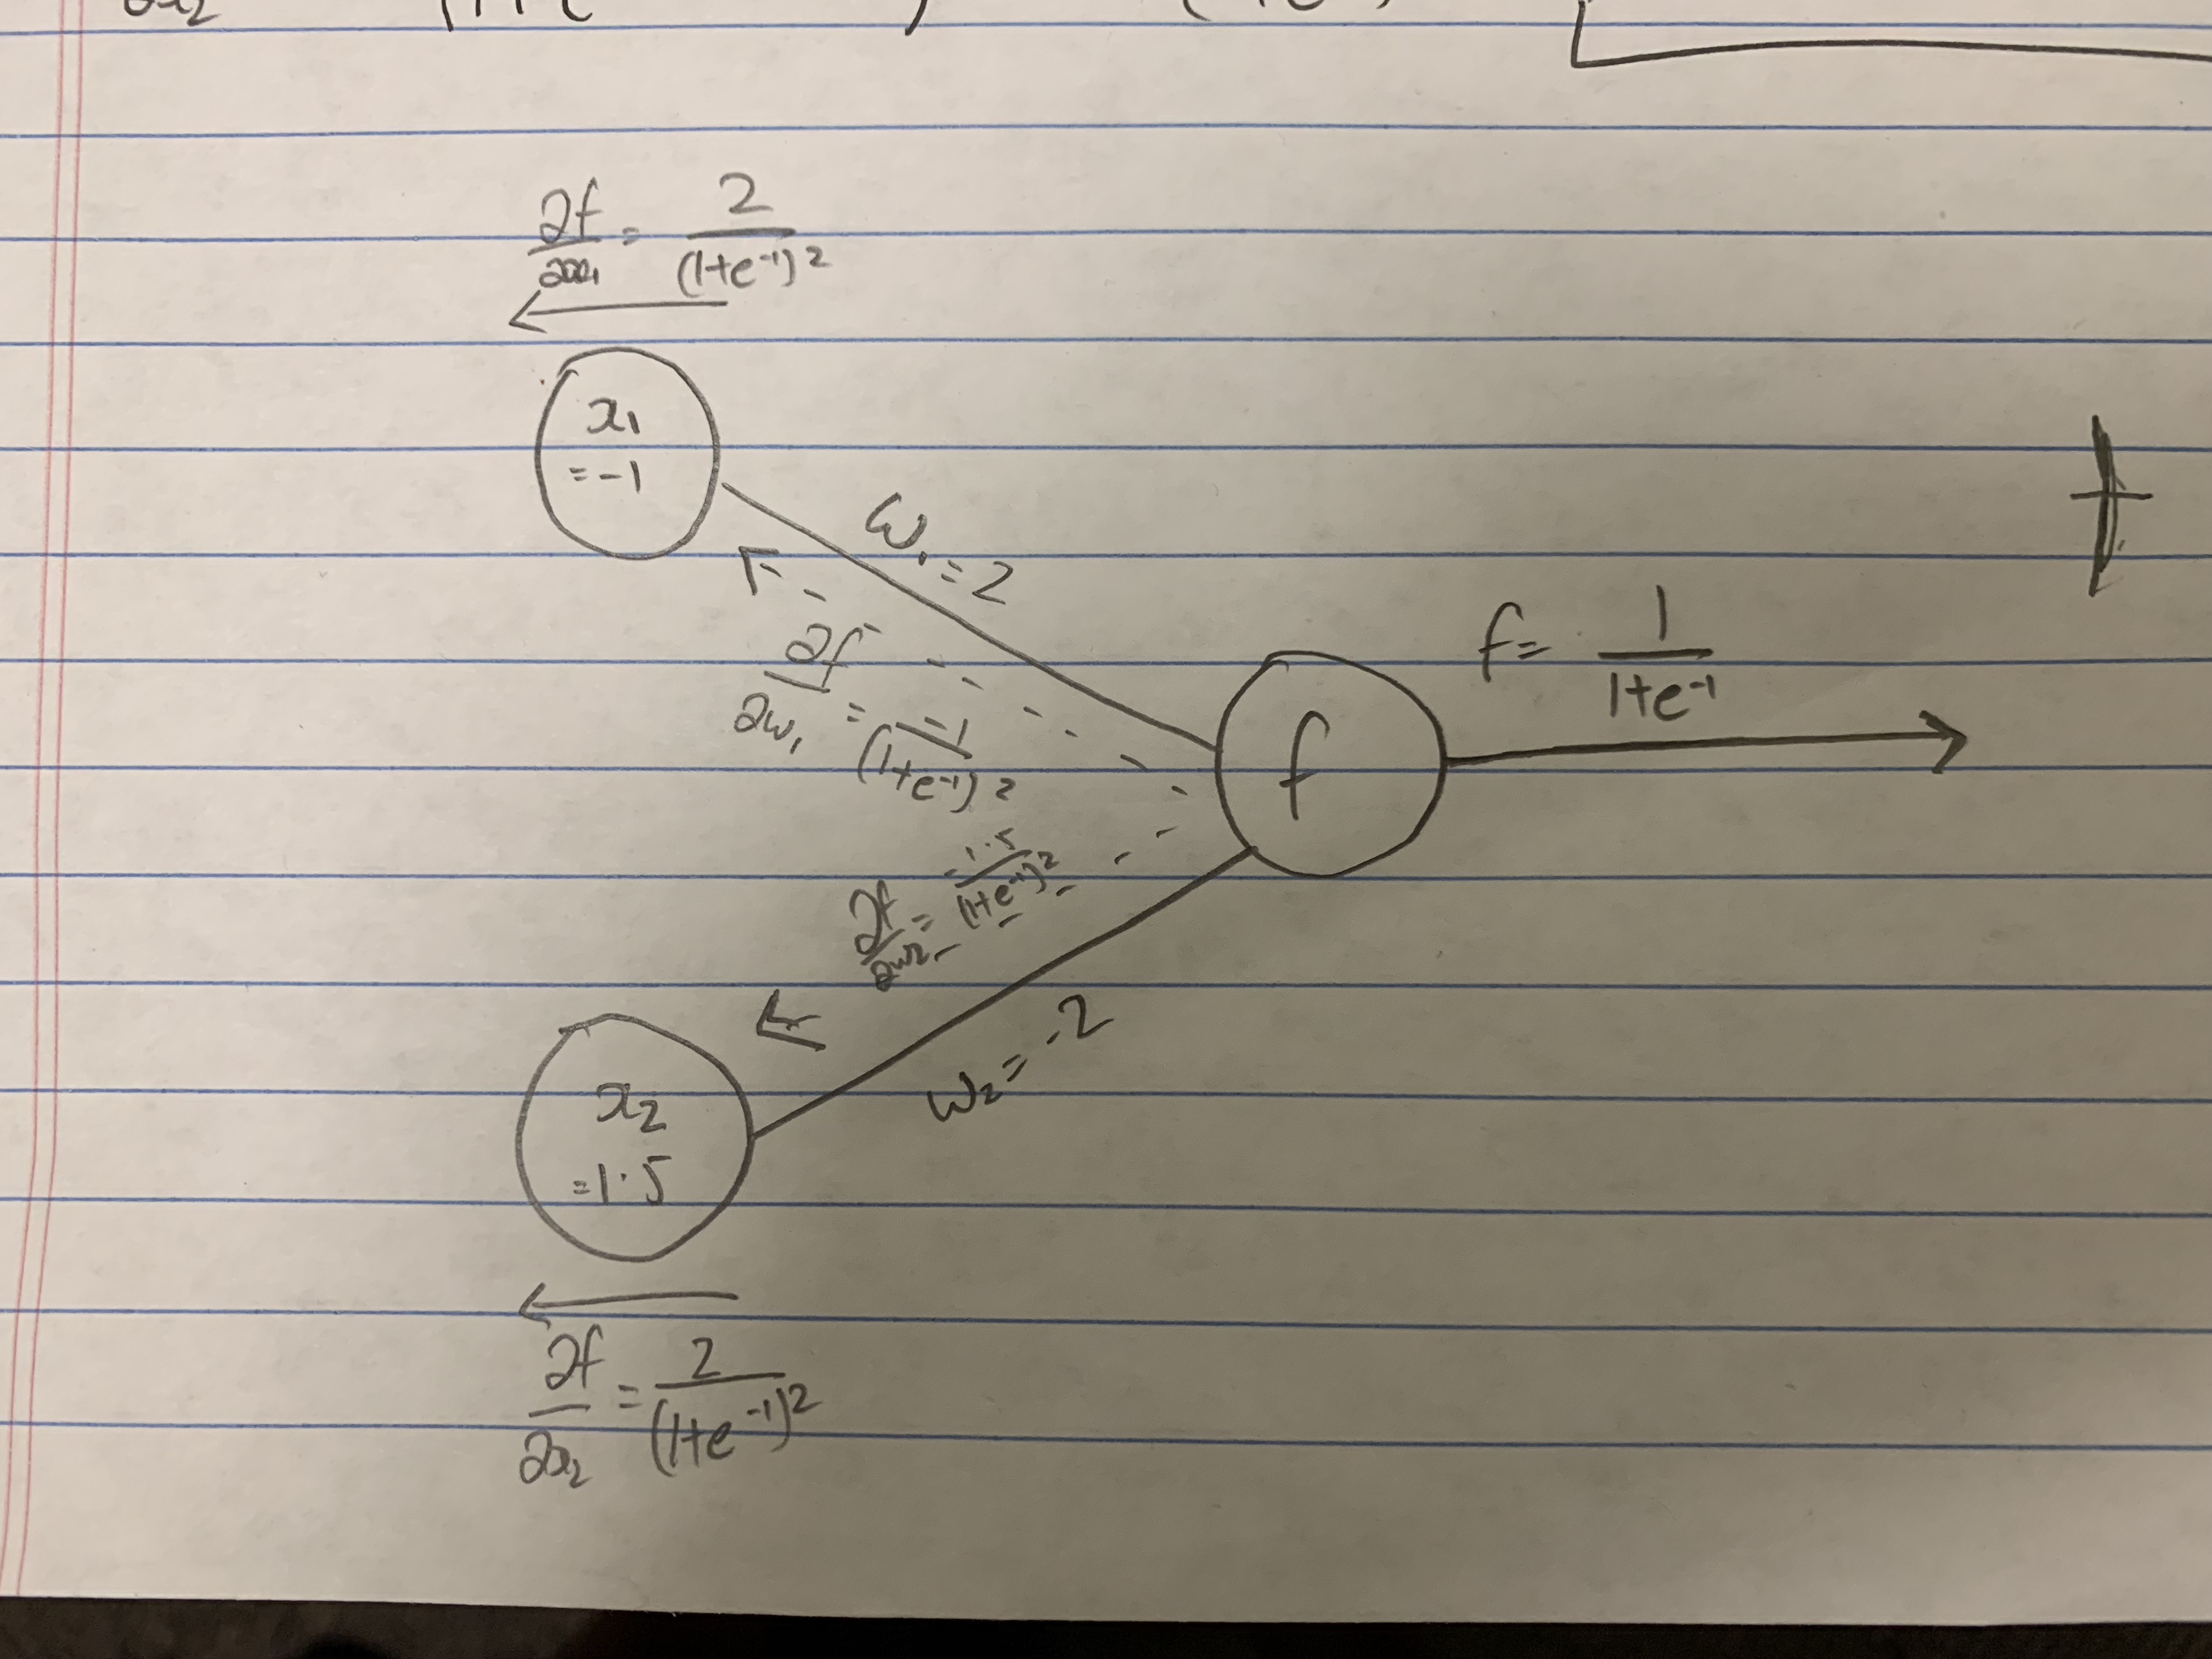 ∂f/∂x₁ = 2/(1+e⁻¹)²
x₁
=-1
ω₁=2
∂f/∂w₁ = -1/(1+e⁻¹)²
f
f= 1/(1+e⁻¹)
∂f/∂w₂ = -1.5/(1+e⁻¹)²
w₂ = -2
x₂
=1.5
∂f/∂x₂ = 2/(1+e⁻¹)²